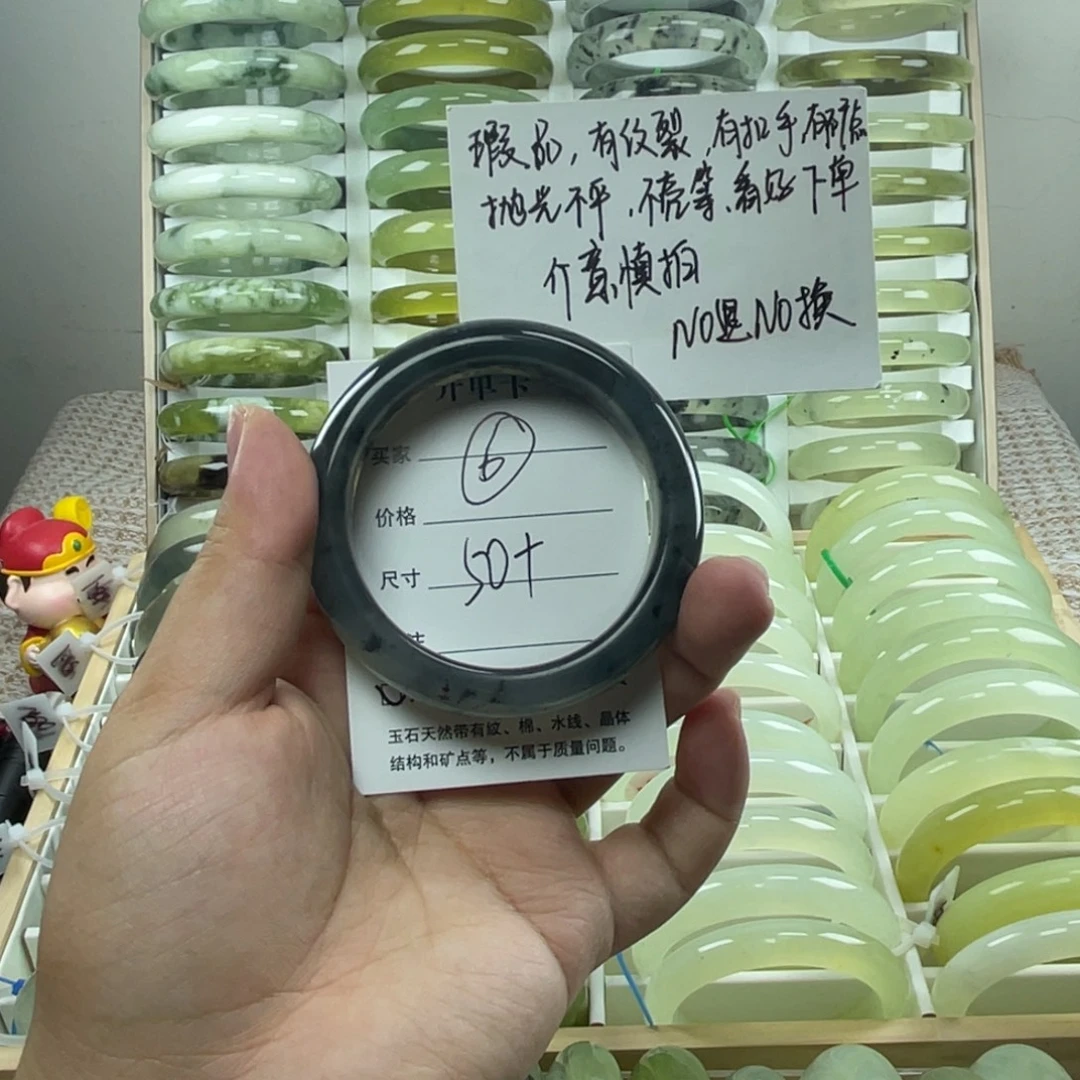 瑕品,有纹裂,有扣手,有脏点
抛光不平,不亮等,看好下单
介意慎拍
NO退NO换
开单卡
买家 ⑥
价格
尺寸 50+
玉石天然带有纹、棉、水线、晶体
结构和矿点等,不属于质量问题。